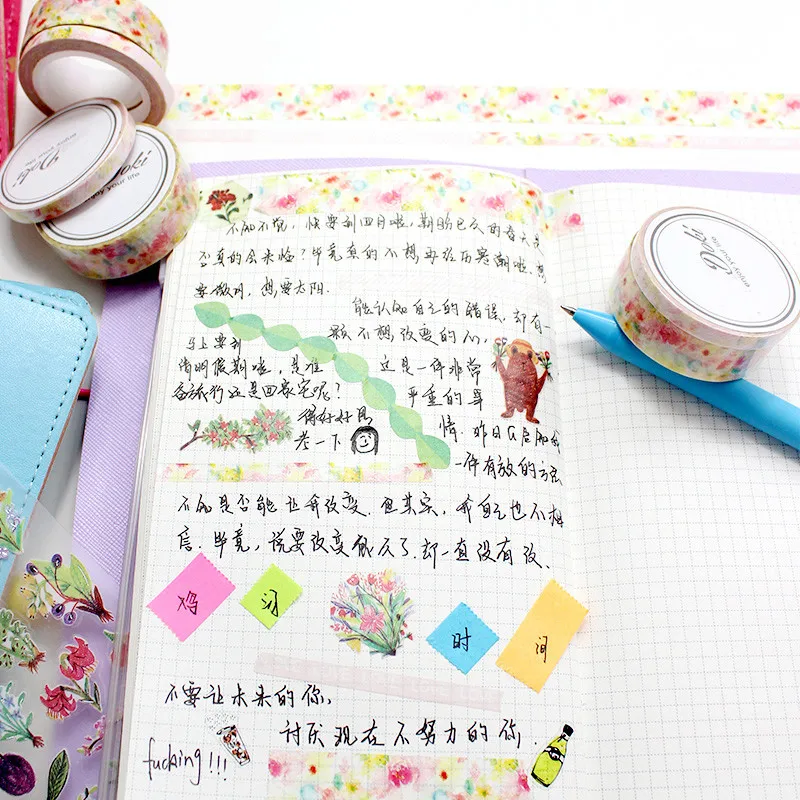 不知不觉，快要到四月啦，期盼已久的春天是
否真的会来临？毕竟真的不想再经历寒潮啦．想
要微风，想要太阳．
能认知自己的错误，却有一
颗不想改变的心，
这是一件非常
严重的事
情．昨日
一件有效的方法
马上要到
清明假期啦，是准
备旅行还是回家宅呢？
得好好思
考一下
不知是否能让我改变．但其实，我自己也不相
信．毕竟，说要改变很久了．却一直没有改．
鸡
汤
时
间
不要让未来的你，
讨厌现在不努力的你．
fucking!!!
enjoy your life
Yoki
enjoy your life
enjoy your life